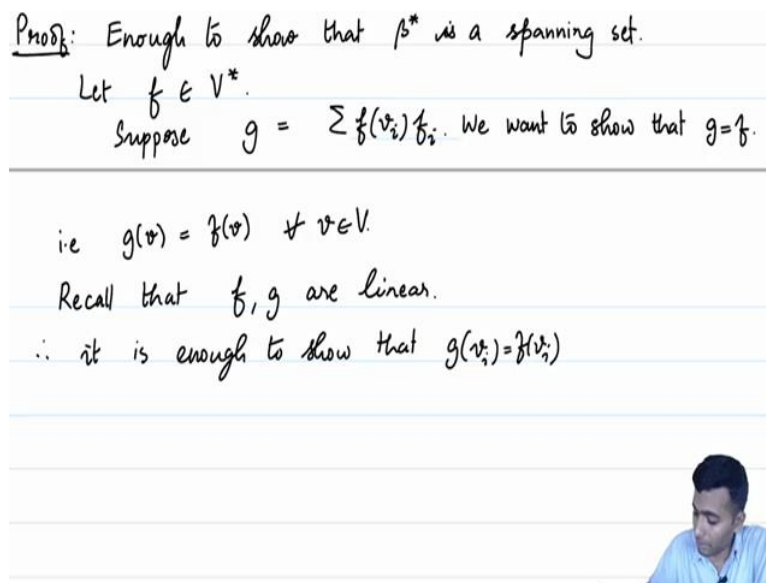 Proof: Enough to show that β* is a spanning set.
Let f ∈ V*.
Suppose g = Σ f(vᵢ) fᵢ. We want to show that g=f.
i.e g(v) = f(v) ∀ v∈V.
Recall that f, g are linear.
∴ it is enough to show that g(vⱼ)=f(vⱼ)